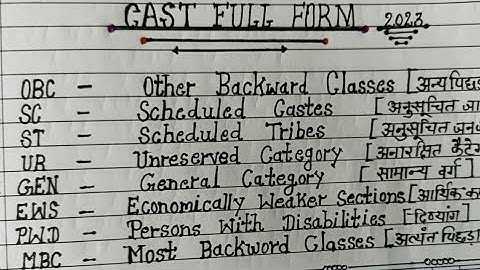 CAST FULL FORM 2023
OBC - Other Backward Classes [अन्य पिछड़
SC - Scheduled Castes [अनुसूचित जा
ST - Scheduled Tribes [अनुसूचित जनज
UR - Unreserved Category [अनारक्षित कैटेग
GEN - General Category [सामान्य वर्ग]
EWS - Economically Weaker Sections [आर्थिक कम
PWD - Persons With Disabilities [दिव्यांग]
MBC - Most Backword Classes [अत्यंत पिछड़ा